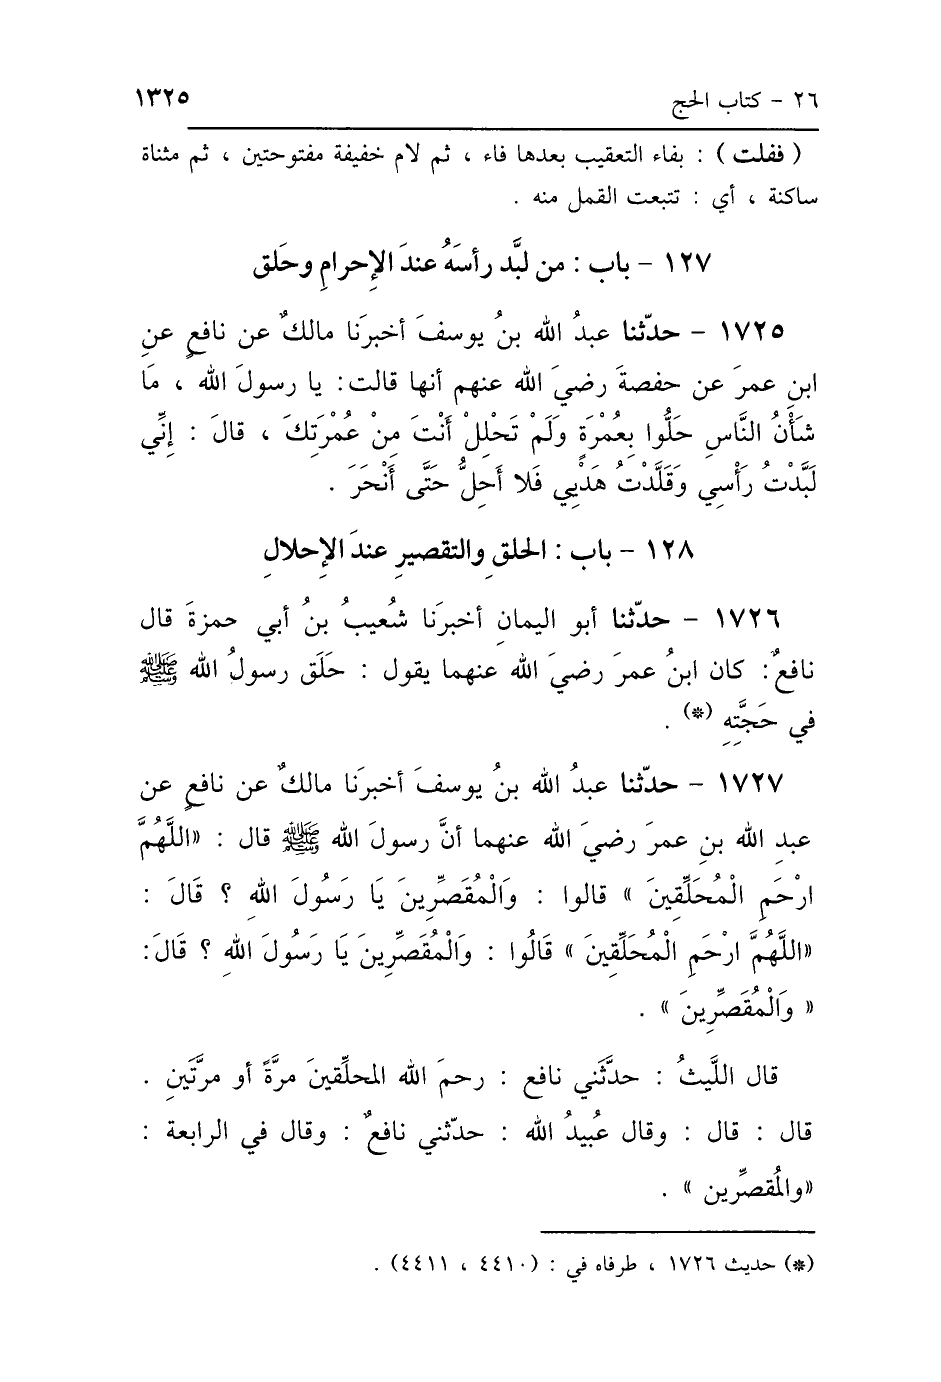 ٢٦ - كتاب الحج ١٣٢٥
( ففلت ) : بفاء التعقيب بعدها فاء ، ثم لام خفيفة مفتوحتين ، ثم مثناة
ساكنة ، أي : تتبعت القمل منه .
١٢٧ - باب : من لبَّد رأسَهُ عندَ الإِحرامِ وحَلق
١٧٢٥ - حدّثنا عبدُ الله بنُ يوسفَ أخبرَنا مالكٌ عن نافعٍ عنِ
ابنِ عمرَ عن حفصةَ رضيَ الله عنهم أنها قالت: يا رسولَ الله ، مَا
شَأْنُ النَّاسِ حَلُّوا بِعُمْرَةٍ وَلَمْ تَحْلِلْ أَنْتَ مِنْ عُمْرَتِكَ ، قالَ : إِنِّي
لَبَّدْتُ رَأْسِي وَقَلَّدْتُ هَدْيِي فَلا أَحِلُّ حَتَّى أَنْحَرَ .
١٢٨ - باب : الحلقِ والتقصيرِ عندَ الإِحلالِ
١٧٢٦ - حدّثنا أبو اليمانِ أخبرَنا شُعيبُ بنُ أبي حمزةَ قال
نافعٌ: كان ابنُ عمرَ رضيَ الله عنهما يقول : حَلَق رسولُ الله ﷺ
في حَجَّتِهِ (*) .
١٧٢٧ - حدّثنا عبدُ الله بنُ يوسفَ أخبرَنا مالكٌ عن نافعٍ عن
عبدِ الله بنِ عمرَ رضيَ الله عنهما أنَّ رسولَ الله ﷺ قال : «اللَّهُمَّ
ارْحَمِ الْمُحَلِّقِينَ » قالوا : وَالْمُقَصِّرِينَ يَا رَسُولَ اللهِ ؟ قَالَ :
«اللَّهُمَّ ارْحَمِ الْمُحَلِّقِينَ » قَالُوا : وَالْمُقَصِّرِينَ يَا رَسُولَ اللهِ ؟ قَالَ:
« وَالْمُقَصِّرِينَ » .
قال اللَّيثُ : حدَّثَني نافع : رحمَ الله المحلِّقينَ مرَّةً أو مرَّتَينِ .
قال : قال : وقال عُبيدُ الله : حدّثني نافعٌ : وقال في الرابعة :
«والمُقصِّرين » .
(*) حديث ١٧٢٦ ، طرفاه في : (٤٤١٠ ، ٤٤١١) .